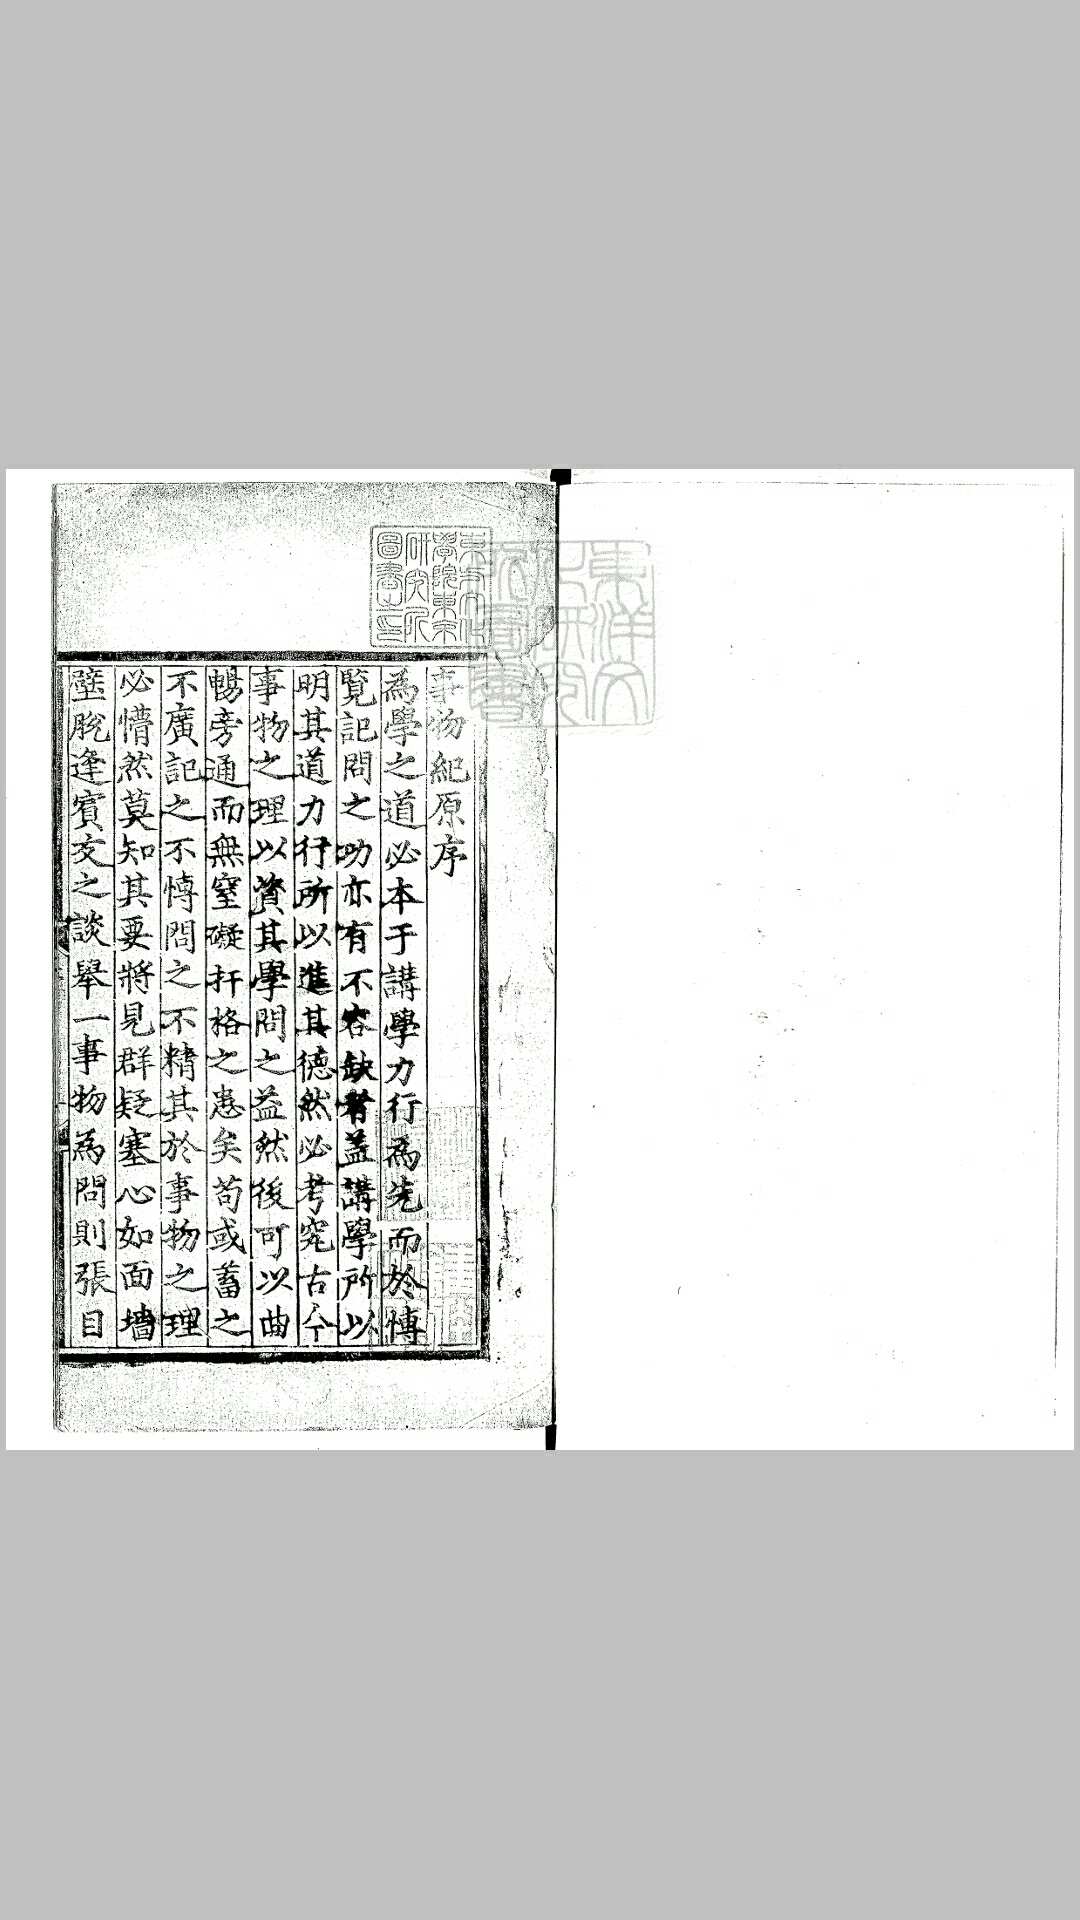 事物紀原序
為學之道必本于講學力行為先而於博
覽記問之功亦有不容缺者盖講學所以
明其道力行所以進其德然必考究古今
事物之理以資其學問之益然後可以曲
暢旁通而無窒礙扞格之患矣苟或蓄之
不廣記之不博問之不精其於事物之理
必懵然莫知其要將見群疑塞心如面墻
壁脫逢賓交之談舉一事物為問則張目
東方文化
學院東京
研究所
圖書之印